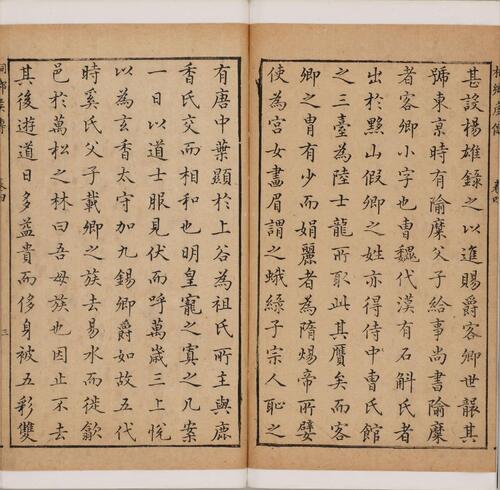 甚設楊雄錄之以進賜爵客卿世襲其
號東京時有隃糜父子給事尚書隃糜
者客卿小字也曹魏代漢有石斛氏者
出於黟山假卿之姓亦得侍中曹氏館
之三臺為陸士龍所取此其贋矣而客
卿之胄有少而娟麗者為隋煬帝所嬖
使為宮女畫眉謂之蛾綠子宗人恥之
有唐中葉顯於上谷為祖氏所主與鹿
香氏交而相和也明皇寵之寘之几案
一日以道士服見伏而呼萬歲三上悅
以為玄香太守加九錫卿爵如故五代
時奚氏父子載卿之族去易水而徙歙
邑於萬松之林曰吾母族也因止不去
其後遊道日多益貴而侈身被五彩雙
三